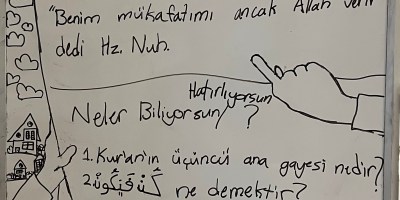 "Benim mükafatımı ancak Allah verir
dedi Hz. Nuh.
Hatırlıyorsun
Neler Biliyorsun/ ?
1. Kur'an'ın üçüncü ana gayesi nedir?
2. كُنْ فَيَكُونُ ne demektir?